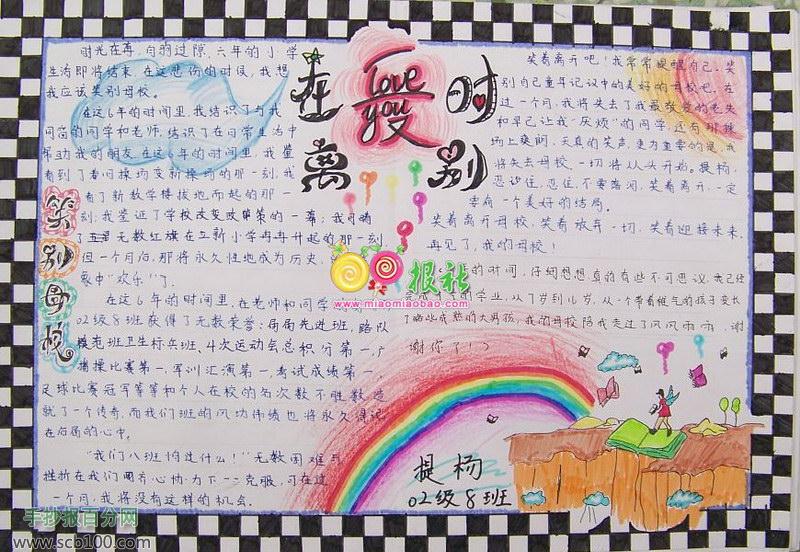 在爱时
love you
离别
笑别母校
时光在再,白驹过隙,六年的小学
生活即将结束,在这悲伤的时候,我想
我应该笑别母校。
在这6年的时间里,我结识了与我
同窗的同学和老师,结识了在日常生活中
帮助我的朋友,在这6年的时间里,我
看到了看旧操场变新操场的那一刻,我
看了新教学楼拔地而起的那一
刻,我鉴证了学校改变的一幕;我目睹
了无数红旗在立新小学冉冉升起的那一刻
但一个月后,那将永久性地成为历史,
象中"欢乐"了。
在这6年的时间里,在老师和同学
02级8班获得了无数荣誉:局局先进班,路队
模范班卫生标兵班、4次运动会总积分第一,广
播操比赛第一,军训汇演第一,考试成绩第一,
足球比赛冠军等等和个人在校的名次数不胜数造
就了一个传奇,而我们班的风功伟绩也将永久得记
在后届的心中。
"我们八班怕过什么!"无数困难与
挫折在我们团齐心协力下一一克服,可在过
一个月,我将没有这样的机会。
笑着离开吧!我常常提醒自己。笑
别自己童年记议中的美好的母校吧,在
过一个月,我将失去了我最敬爱的老失
和早己让我"厌烦"的同学,还有那操
场上爽朗,天真的笑声,更为重要的是,我
将失去母校,一切将从头开始。提杨,
忍住,忍住,不要落泪,笑着离开,一定
会有一个美好的结局。
笑着离开母校,笑着放弃一切,笑着迎接未来,
再见了,我的母校!
的时间,仔细想想真的有些不可思议,我已经
完成小学的学业,从7岁到16岁,从一个带着稚气的孩子变长
了略些成熟的大男孩,我的母校陪我走过了风风雨雨,谢
谢你了!)
报社
www.miaomiaobao.com
提杨
02级8班
手抄报百分网
www.scb100.com